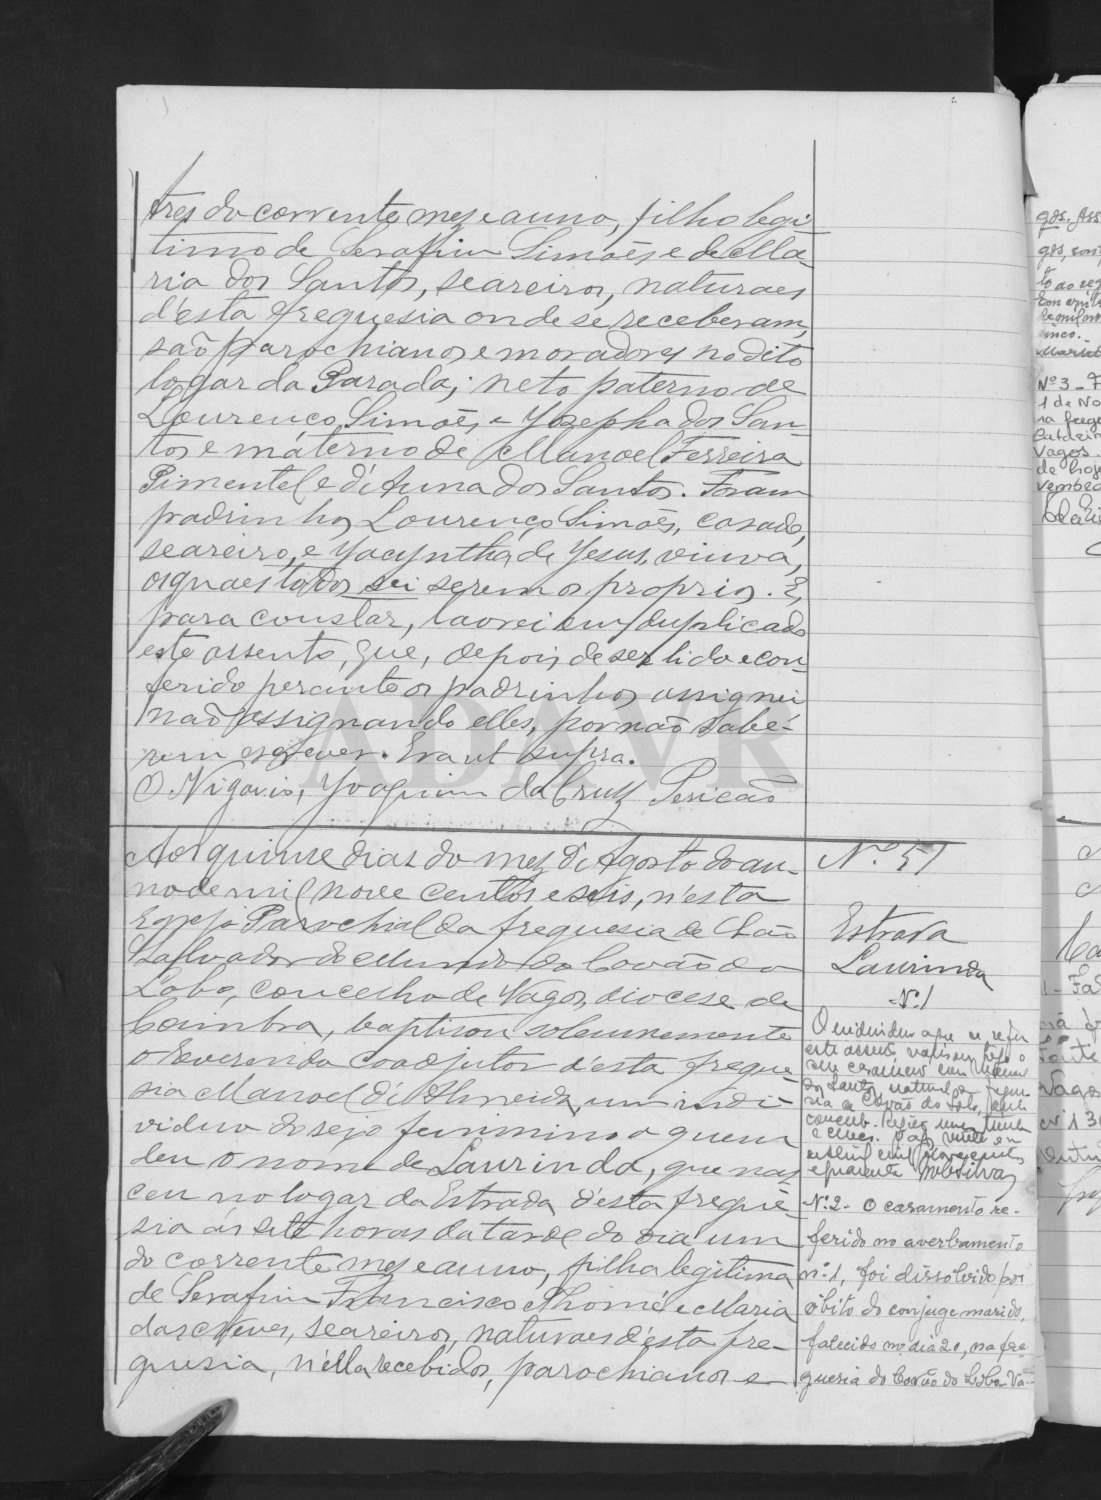 tres do corrente mez e anno, filho legi-
timo de Serafim Simões e de Ma-
ria dos Santos, seareiros, naturaes
d'esta freguesia onde se receberam,
são parochianos e moradores no dito
logar da Parada; neto paterno de
Lourenço Simões e Josepha dos San-
tos e materno de Manoel Ferreira
Pimentel e d'Anna dos Santos. Foram
padrinhos Lourenço Simões, casado,
seareiro, e Jacyntha de Jesus, viuva,
os quaes todos sei serem os proprios. E,
para constar, lavrei em duplicado
este assento, que, depois de ser lido e con-
ferido perante os padrinhos assignei
não assignando elles, por não sabe-
rem escrever. Era ut supra.
O Vigario, Joaquim da Cruz Pericão
ADAVR
Aos quinse dias do mez d'Agosto do an-
no de mil nove centos e seis, n'esta
Egreja Parochial da freguesia de São
Salvador do Mundo do Covão do
Lobo, concelho de Vagos, diocese de
Coimbra, baptisou solemnemente
o Reverendo coadjutor d'esta fregue-
sia Manoel d'Almeida, um indi-
viduo do sexo feminino a quem
deu o nome de Laurinda, que nas-
ceu no logar da Estrada d'esta fregue-
sia ás sete horas da tarde do dia um
do corrente mez e anno, filha legitima
de Serafim Francisco Thomé e Maria
das Neves, seareiros, naturaes d'esta fre-
guesia, n'ella recebidos, parochianos e
Nº 51
Estrada
Laurinda
Nº 1
O individuo a que se refere
este assento
seu casamento com Manuel
dos Santos natural da fregue-
sia de Covão do Lobo,
concelho
Nº 2 - O casamento re-
ferido no averbamento
nº 1, foi dissolvido por
óbito do conjuge marido,
falecido no dia 20, na fre-
guesia do Covão do Lobo Va-
Nº 3 - F
1 de No
na fregu
Vagos.
de hoje
vembro